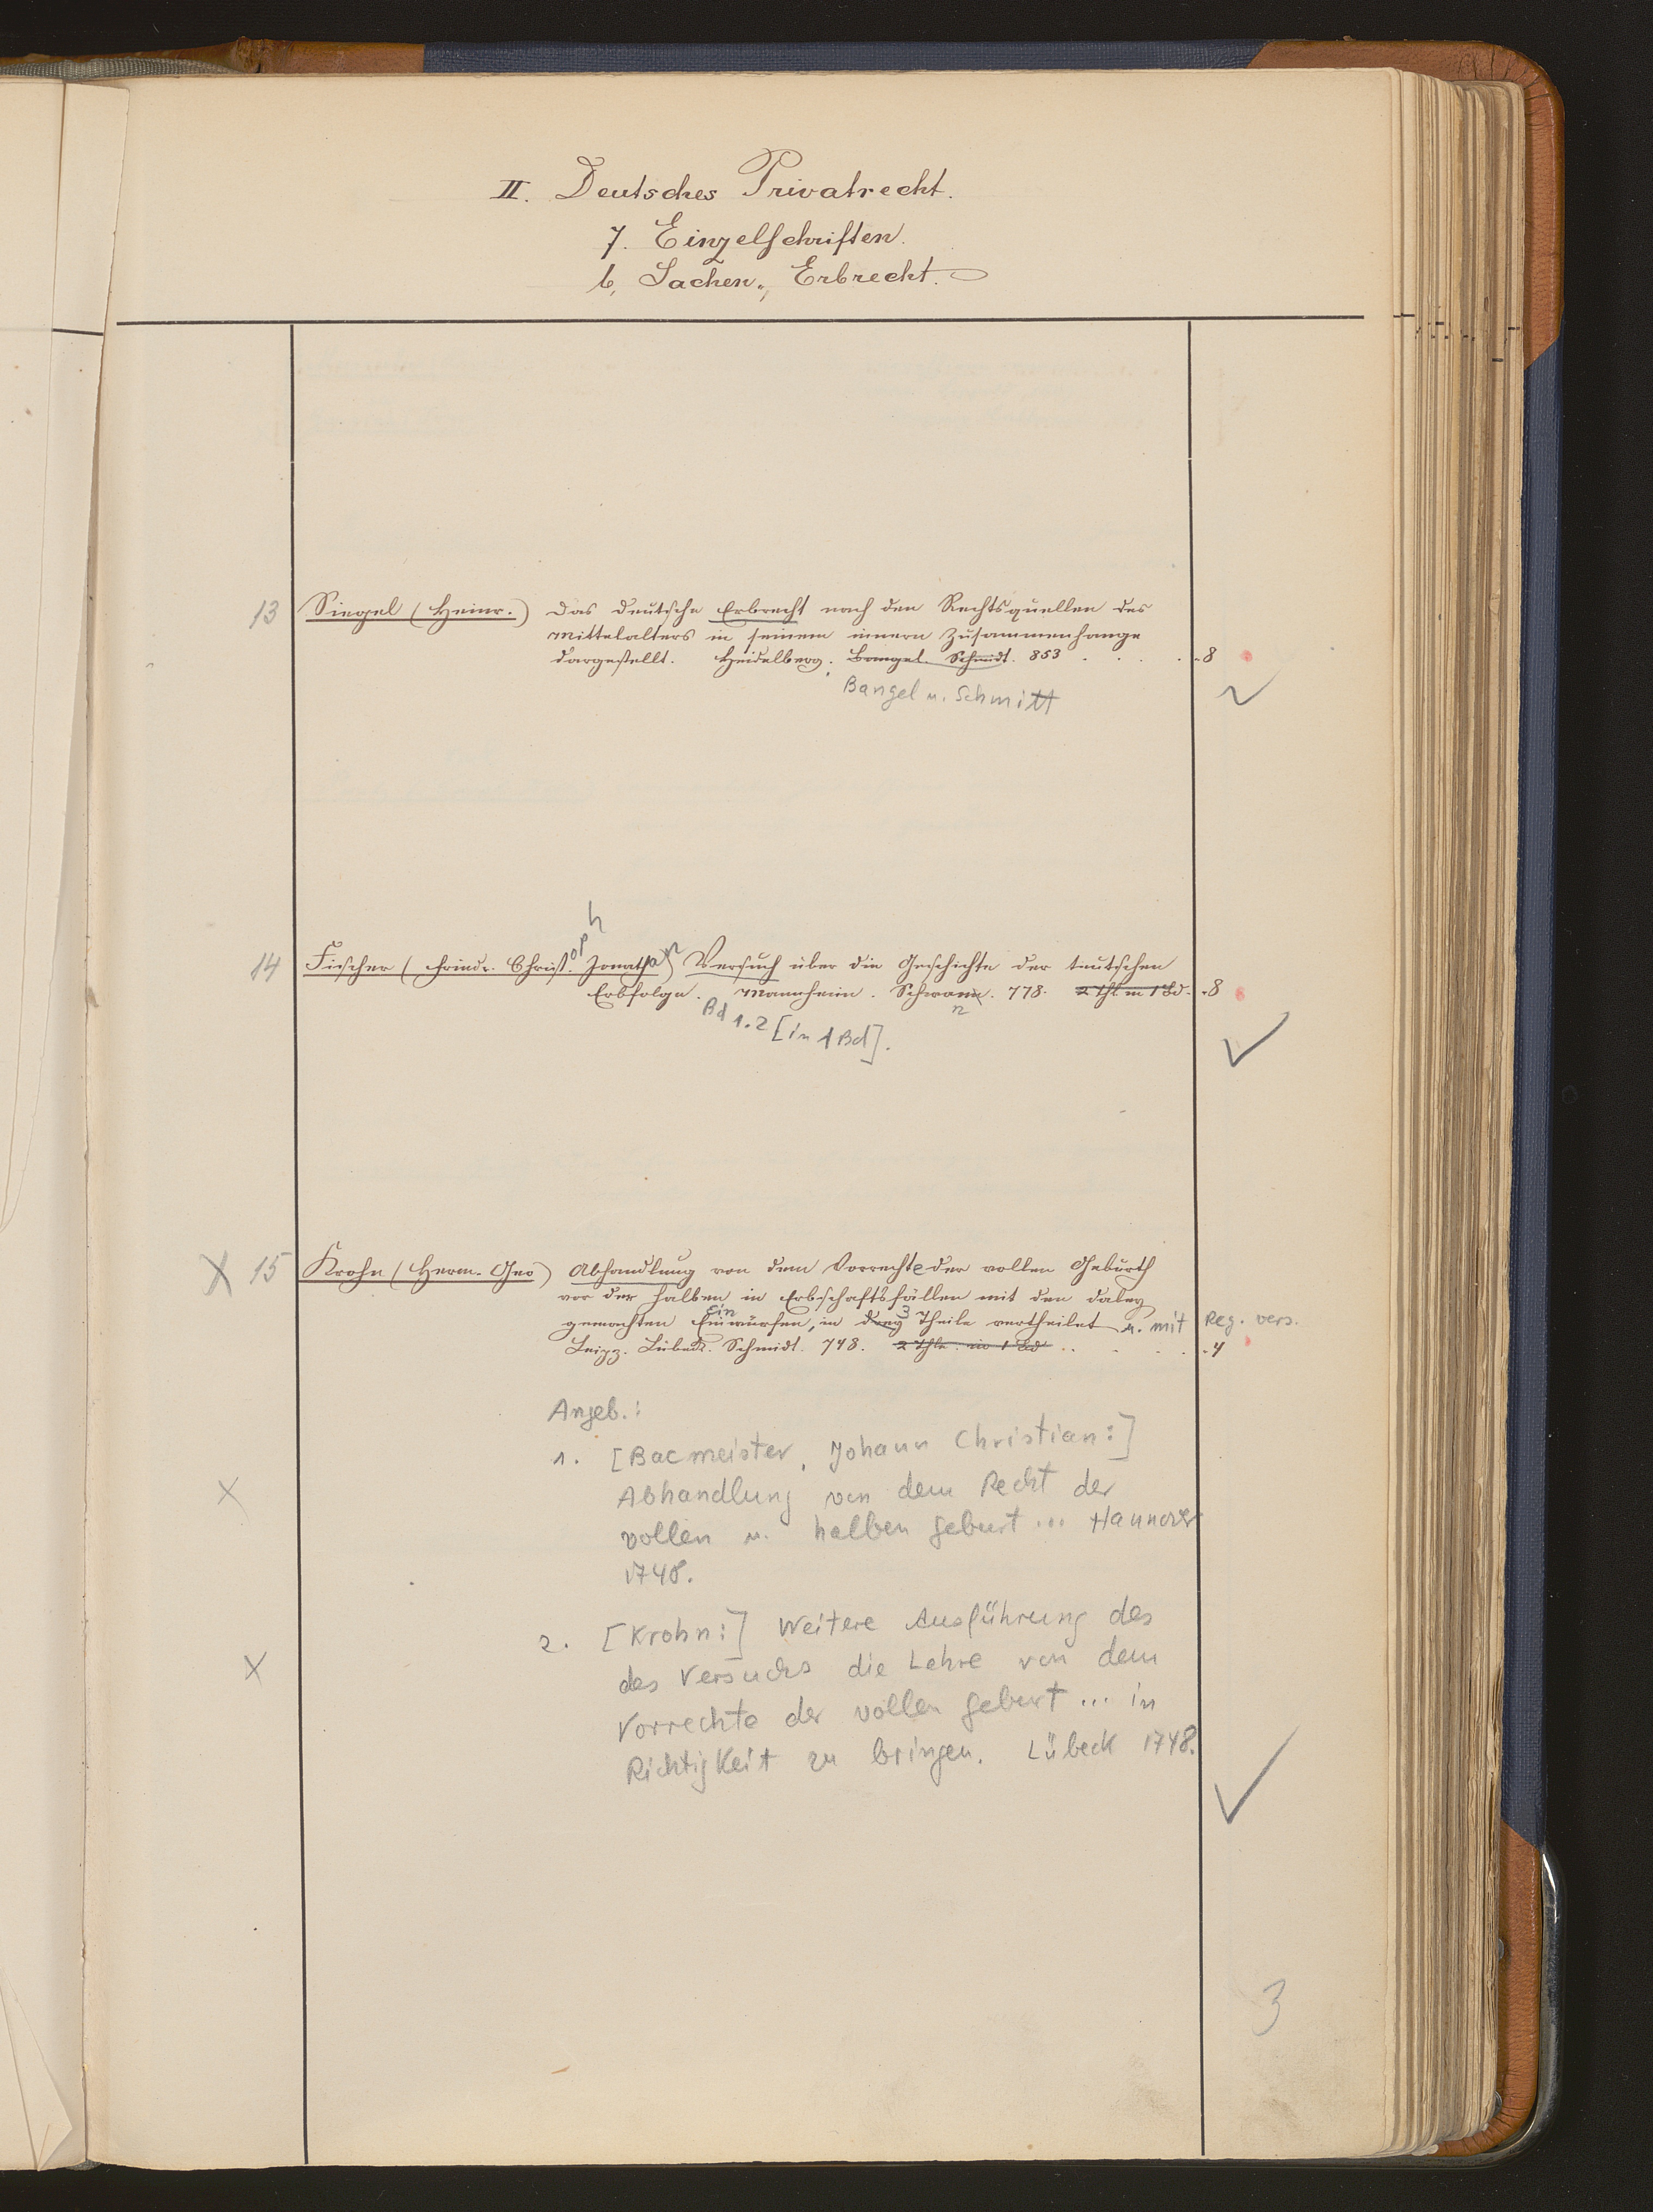 II. Deutsches Privatrecht.
7. Einzelschriften.
b, Sachen-, Erbrecht.
13 Siegel (Heinr.) Das deutsche Erbrecht nach den Rechtsquellen des
Mittelalters in seinem innern Zusammenhange
dargestellt. Heidelberg. Bangel. Schmidt. 853 . . . . . 8
Bangel u. Schmitt
h
14 Fischer (Friedr. Christoph Jonathan) Versuch über die Geschichte der teutschen
Erbfolge. Mannheim. Schwann. 778. 2 Thl in 1 Bd. . 8
n
Bd 1.2 [in 1 Bd].
X 15 Krohn (Herm. Geo) Abhandlung von dem Vorrechte der vollen Geburth
vor der halben in Erbschaftsfällen mit den dabey
ein 3
gemachten Einwürfen, in drey Theile vertheilet u. mit Reg. vers.
Leipz. Lübeck. Schmidt. 748. 2 Thle. in 1 Bd . . . . . 4
Angeb.:
1. [Bacmeister, Johann Christian:]
X Abhandlung von dem Recht der
vollen u. halben Geburt ... Hannover
1748.
2. [Krohn:] Weitere Ausführung des
X des Versuchs die Lehre von dem
Vorrechte der vollen Geburt ... in
Richtigkeit zu bringen. Lübeck 1748.
3